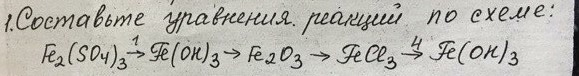 1. Составьте уравнения реакций по схеме:
Fe₂(SO₄)₃ →¹ Fe(OH)₃ → Fe₂O₃ → FeCl₃ →⁴ Fe(OH)₃